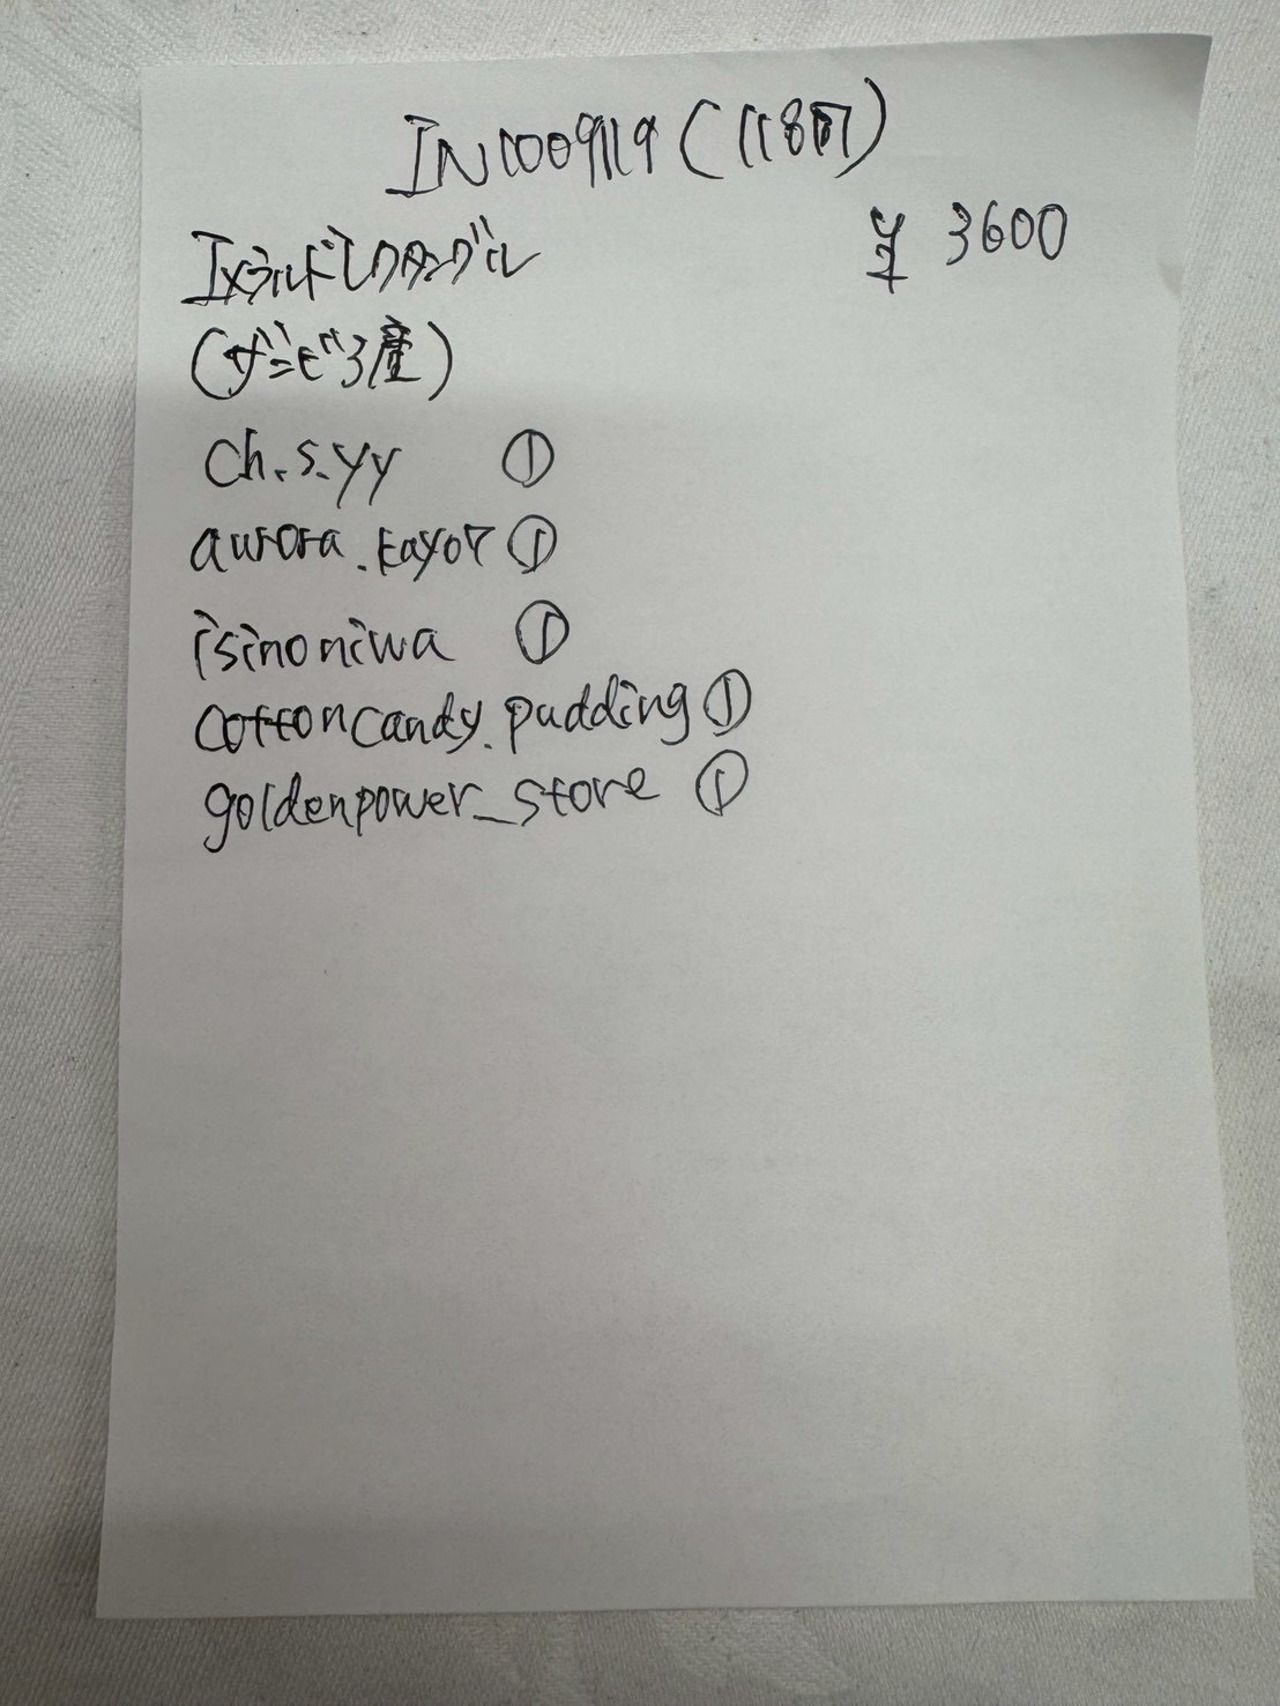 IN1009119(118the)
エメラルドレクタングル ¥3600
(ザンビア産)
ch.s.yy ①
aurora.kayor ①
isinoniwa ①
cottoncandy.pudding ①
goldenpower_store ①